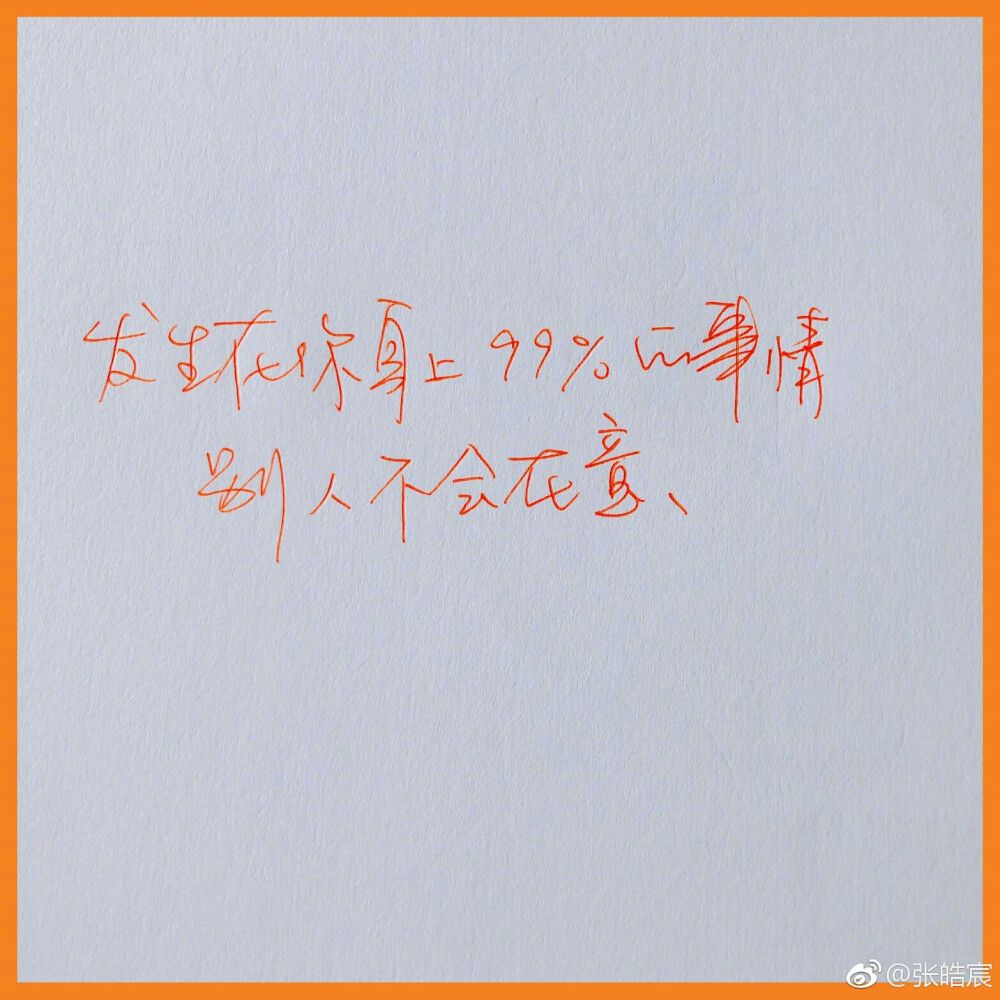 发生在你身上99%的事情
别人不会在意、
@张皓宸